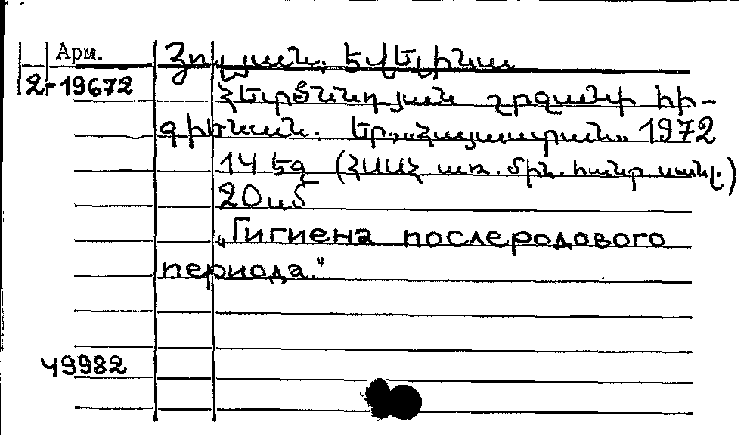 Арм.
2-19672
Հոլյան, Եվելինա
Հետծննդյան շրջանի հի-
գիենան. Եր., „Հայաստան„ 1972
14 էջ (ՀՍՍՀ առ. մին. հանր. սանլ.)
20սմ
„Гигиена послеродового
периода."
49982